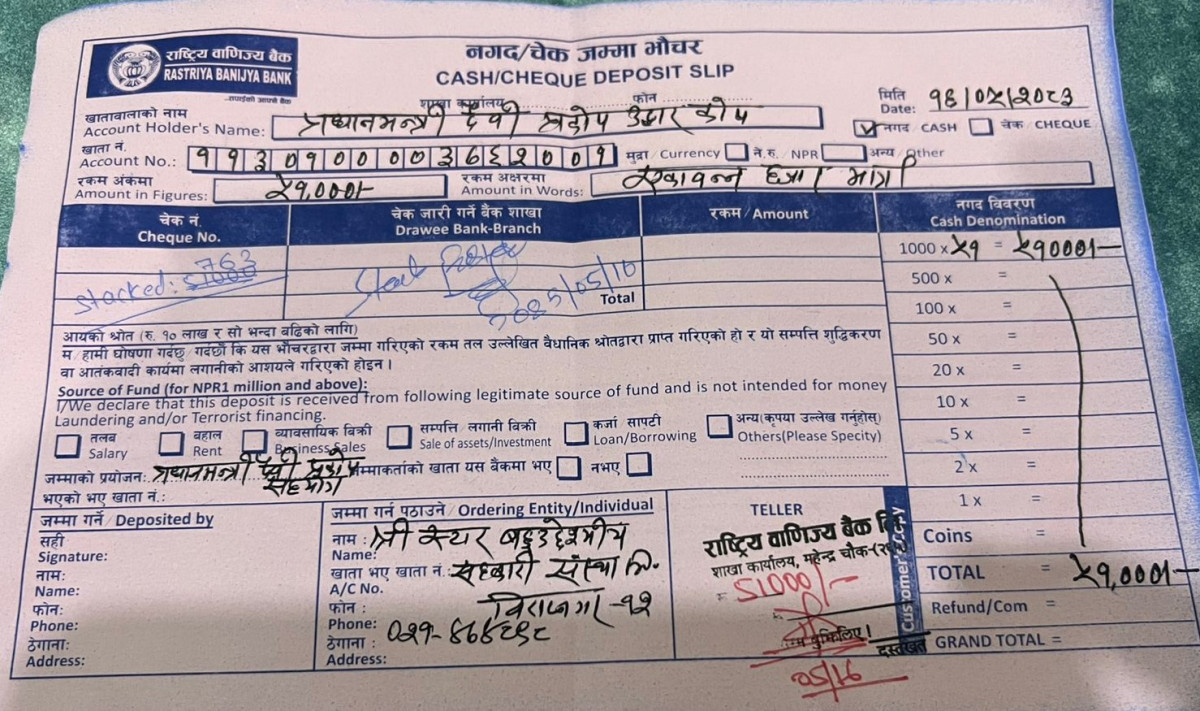 राष्ट्रिय वाणिज्य बैंक
RASTRIYA BANIJYA BANK
...तपाईंको आफ्नै बैंक
नगद/चेक जम्मा भौचर
CASH/CHEQUE DEPOSIT SLIP
शाखा कार्यालय फोन
मिति
Date: १६/०५/२०८३
खातावालाको नाम
Account Holder's Name: प्रधानमन्त्री दैवी प्रकोप उद्धार कोष
नगद CASH चेक CHEQUE
खाता नं.
Account No.: ११३०१००००३६६२००१ मुद्रा/Currency ने.रु./NPR अन्य/Other
रकम अंकमा
Amount in Figures: ५१,०००/-
रकम अक्षरमा
Amount in Words: एकाउन्न हजार मात्र
चेक नं.
Cheque No.
चेक जारी गर्ने बैंक शाखा
Drawee Bank-Branch
रकम/Amount
नगद विवरण
Cash Denomination
1000 x ५१ = ५१०००/-
500 x =
100 x =
50 x =
20 x =
10 x =
5 x =
2 x =
1 x =
Coins =
TOTAL = ५१,०००/-
Refund/Com =
GRAND TOTAL =
763
Stacked: 51000
2025/05/10
Total
आयको श्रोत (रु. १० लाख र सो भन्दा बढिको लागि)
म/हामी घोषणा गर्दछु/गर्दछौं कि यस भौचरद्वारा जम्मा गरिएको रकम तल उल्लेखित वैधानिक श्रोतद्वारा प्राप्त गरिएको हो र यो सम्पत्ति शुद्धिकरण
वा आतंकवादी कार्यमा लगानीको आशयले गरिएको होइन।
Source of Fund (for NPR1 million and above):
I/We declare that this deposit is received from following legitimate source of fund and is not intended for money
Laundering and/or Terrorist financing.
तलब
Salary
बहाल
Rent
व्यावसायिक बिक्री
Business Sales
सम्पत्ति लगानी बिक्री
Sale of assets/Investment
कर्जा सापटी
Loan/Borrowing
अन्य(कृपया उल्लेख गर्नुहोस्)
Others(Please Specity)
जम्माको प्रयोजन: प्रधानमन्त्री दैवी प्रकोप जम्माकर्ताको खाता यस बैंकमा भए नभए
सहयोग
भएको भए खाता नं.:
जम्मा गर्ने/Deposited by
सही
Signature:
नाम:
Name:
फोन:
Phone:
ठेगाना:
Address:
जम्मा गर्न पठाउने/Ordering Entity/Individual
नाम: श्री स्टार बहुउद्देश्यीय
Name:
खाता भए खाता नं.: सहकारी संस्था लि.
A/C No.
फोन: विराटनगर -१२
Phone: ०२१-४६४८९८
ठेगाना:
Address:
TELLER
राष्ट्रिय वाणिज्य बैंक लि.
शाखा कार्यालय, महेन्द्र चौक
51000/-
रकम बुझिलिए।
दस्तखत
०५/१६
Customer's Copy